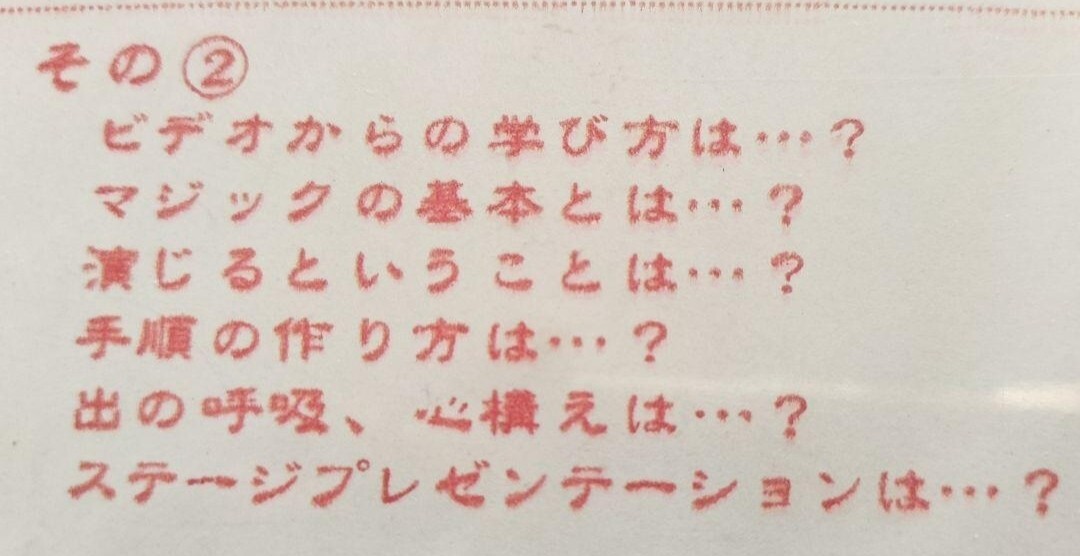 その②
ビデオからの学び方は…?
マジックの基本とは…?
演じるということは…?
手順の作り方は…?
出の呼吸、心構えは…?
ステージプレゼンテーションは…?